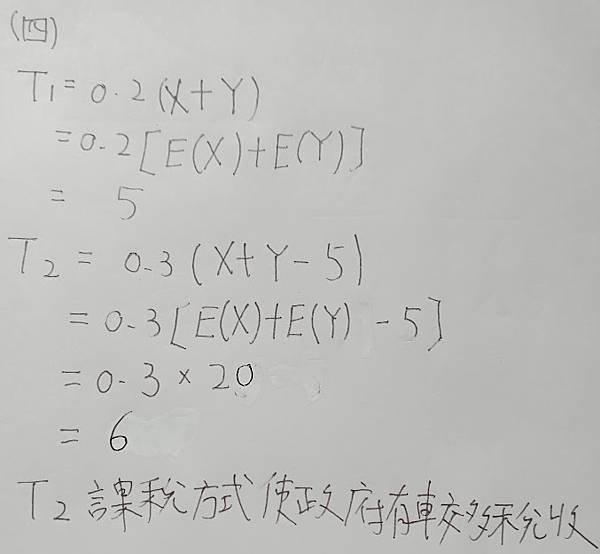 (四)
T1 = 0.2 (X+Y)
= 0.2 [E(X)+E(Y)]
= 5
T2 = 0.3 (X+Y-5)
= 0.3 [E(X)+E(Y) -5]
= 0.3 × 20
= 6
T2 課稅方式使政府有較多稅收